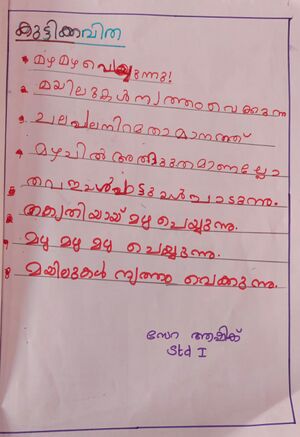 കുട്ടിക്കവിത
മഴ മഴ പെയ്യുന്നു!
മയിലുകൾ നൃത്തം വെക്കുന്നു
പലപലനിറമതാമാനത്ത്
മഴവിൽ അത്ഭുതമാണല്ലോ
തവളകൾ പാട്ടുകൾ പാടുന്നു.
തകൃതിയായ് മഴ പെയ്യുന്നു.
മഴ മഴ മഴ പെയ്യുന്നു.
മയിലുകൾ നൃത്തം വെക്കുന്നു.
സേറ ആഷിക്
Std I